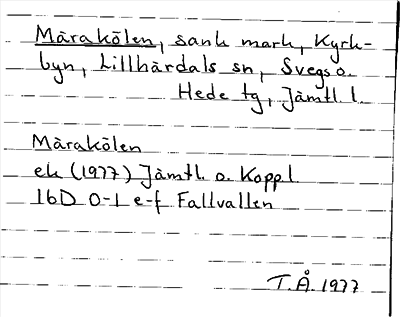 Märakölen, sank mark, Kyrk-
byn, Lillhärdals sn, Svegs o.
Hede tg, Jämtl. l.
Märakölen
ek (1977) Jämtl. o. Koppl
16D 0-1 e-f Fallvallen
T.Å. 1977